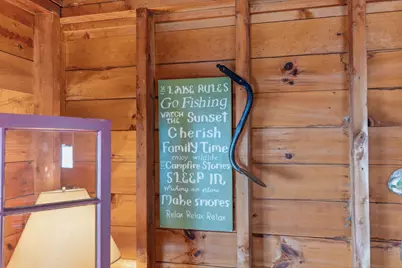 LAKE RULES
Go Fishing
WATCH THE Sunset
Cherish
Family Time
enjoy wildlife
Campfire Stories
SLEEP IN
Make smores
Relax Relax Relax